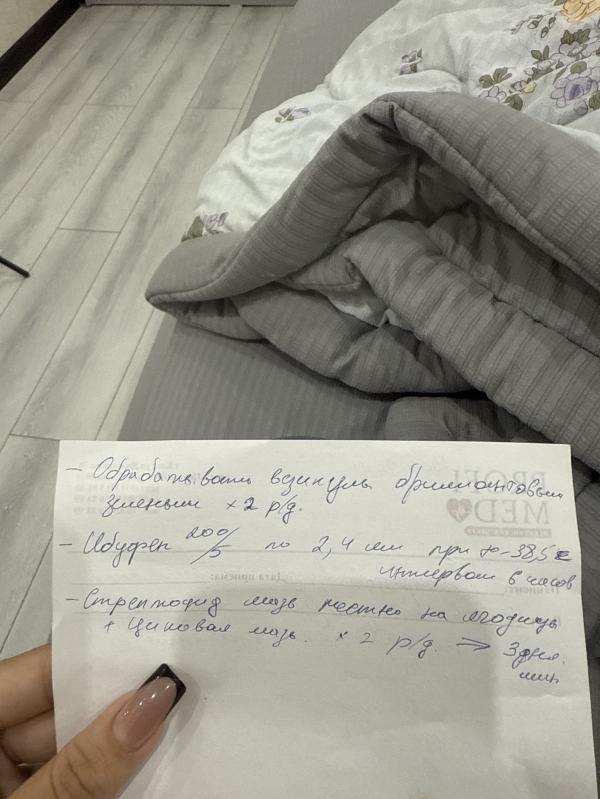 - Обрабатывать везикулы бриллиантовым
зеленым х 2 р/д.
- Ибуфен 200/5 по 2,4 мл при t>38,5
интервал 6 часов
- Стрептоцид мазь местно на ягодицы
+ Цинковая мазь х 2 р/д. => 3 дня.
PROFI
MED
Дата приема: